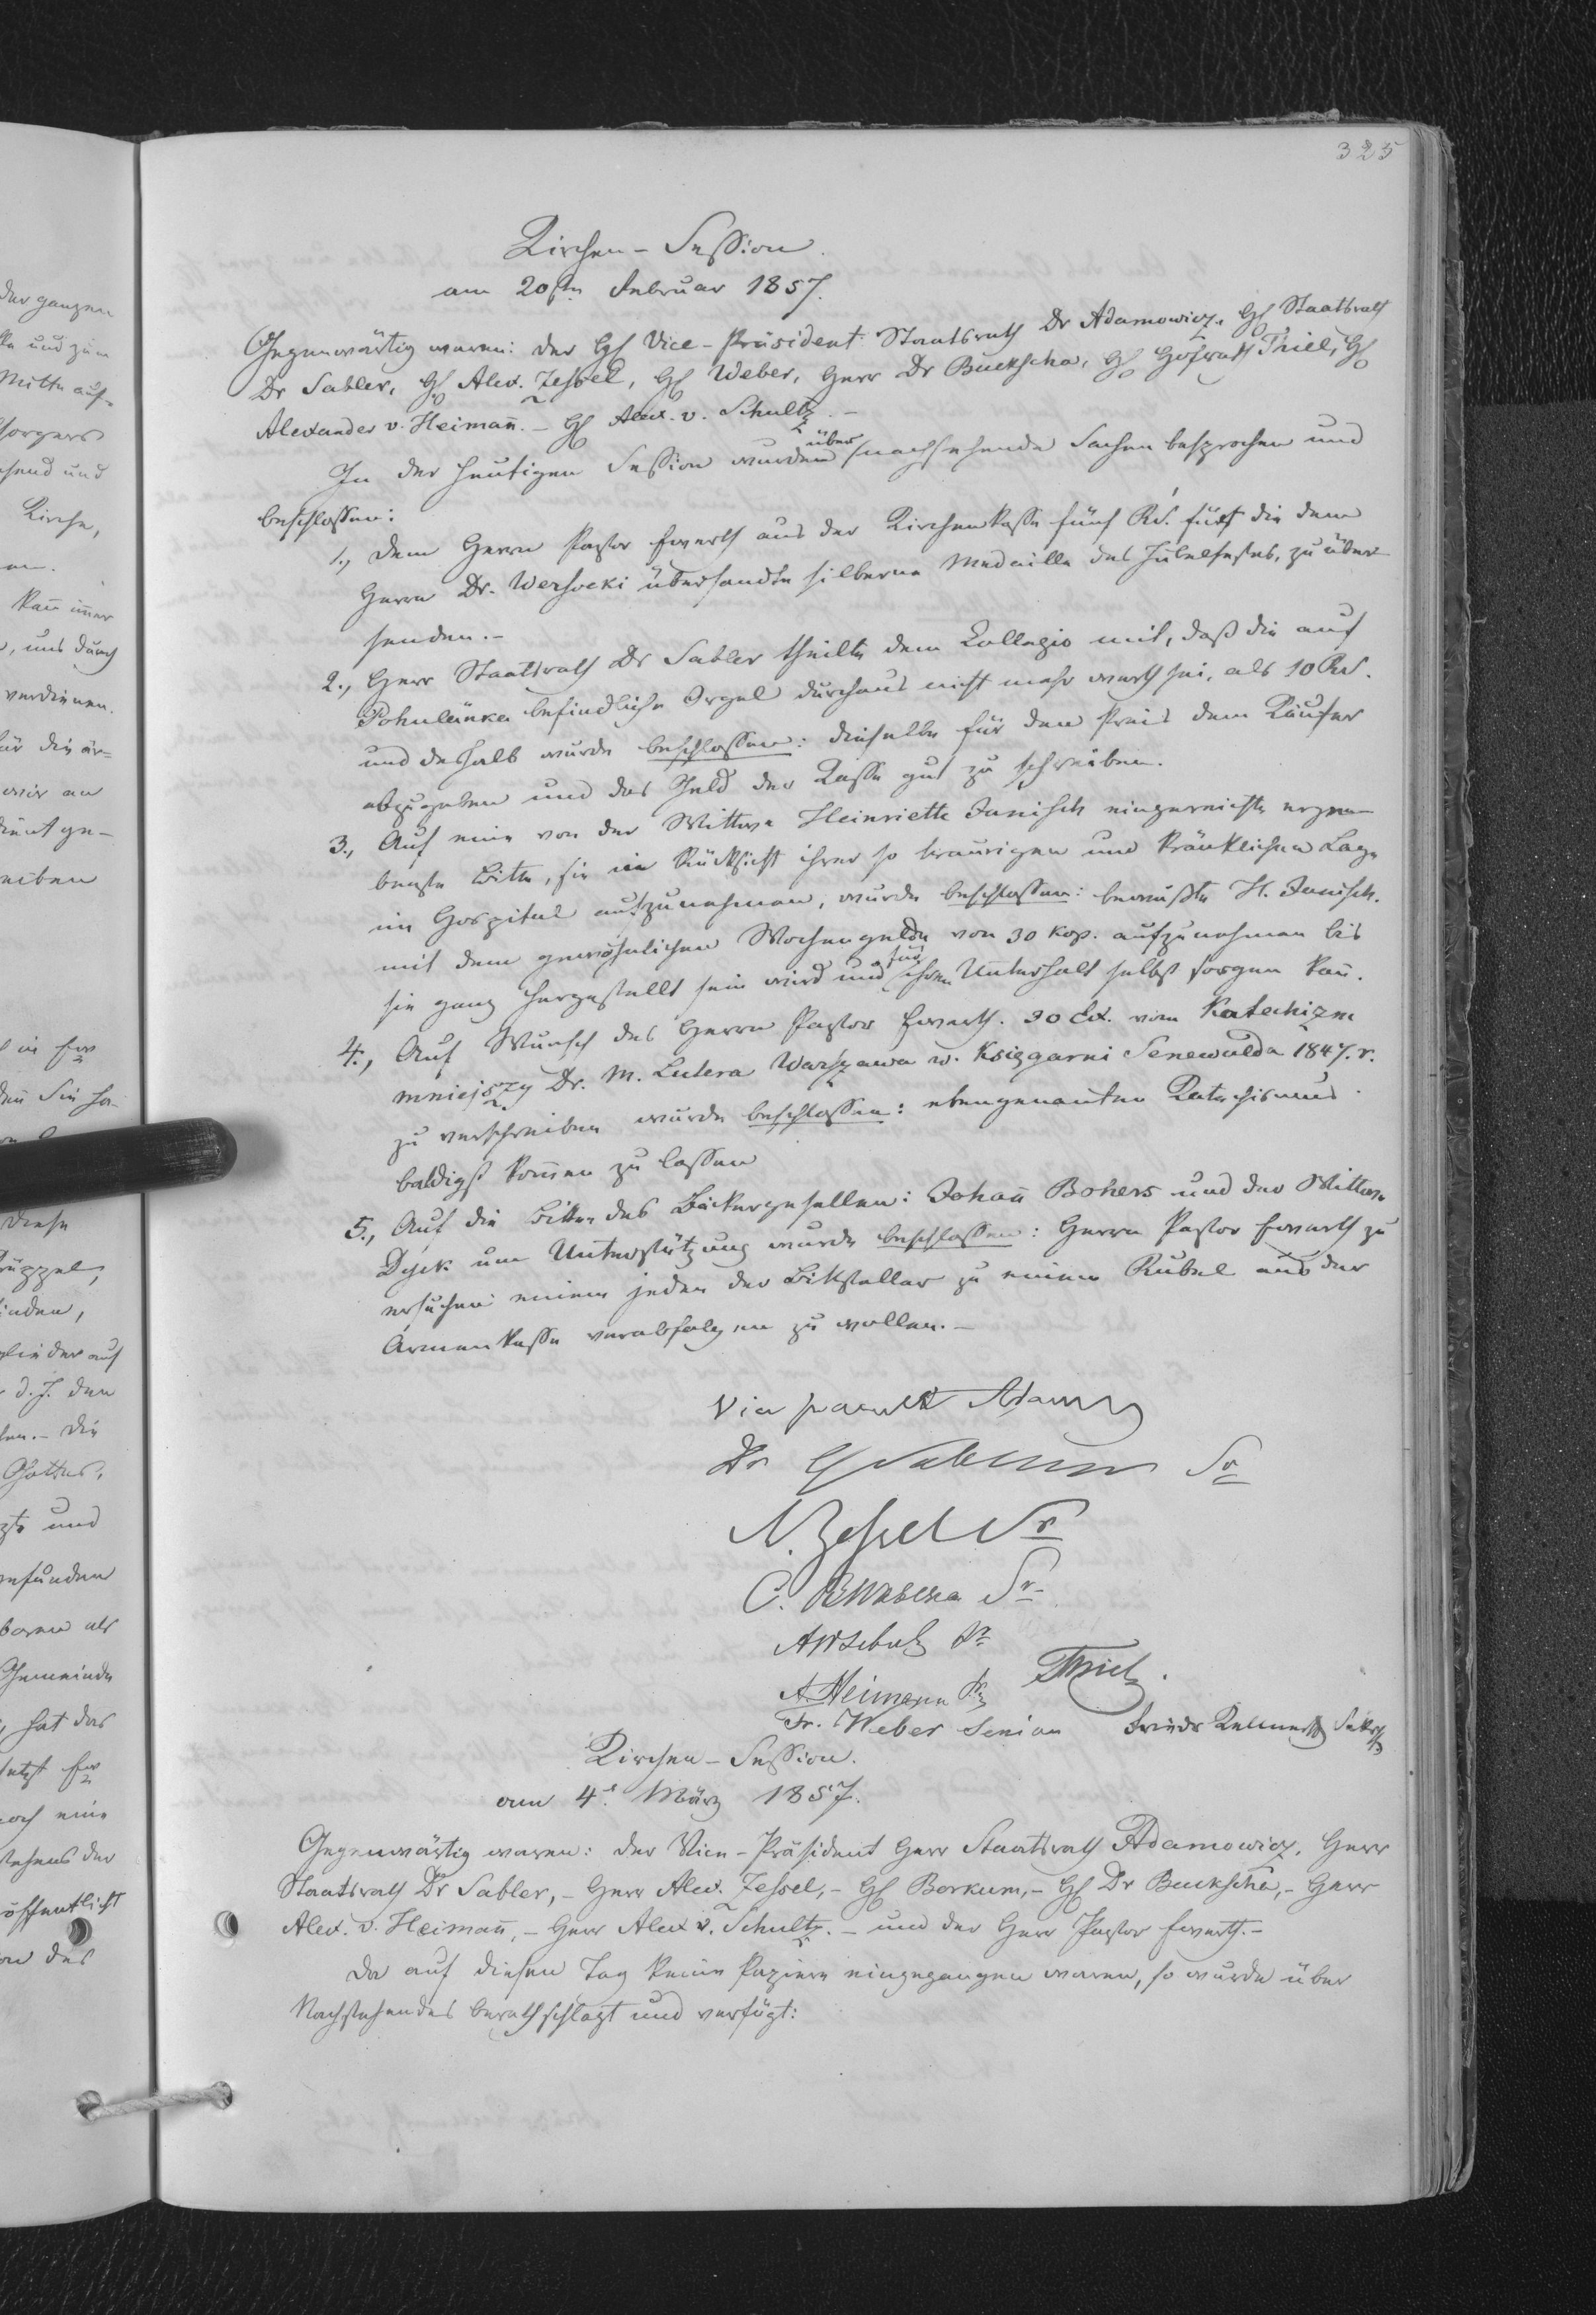 325
Kirchen-Session
am 20sten Februar 1857.
Gegenwärtig waren: der H. Vice-Präsident Staatsrath Dr Adamowicz, H. Staatsrath
Dr Sabler, H. Alex. Zessel, H. Weber, Herr Dr Buckscha, H. Hofrath Thiel, H.
Alexander v. Heimañ. - H. Alex. v. Schultz. -
In der heutigen Session wurden über nachstehende Sachen besprochen und
beschlossen:
1., dem Herrn Pastor Ewerth aus der Kirchenkasse fünf Rs. für die dem
Herrn Dr. Wersocki übersandte silberne Medaille des Jubelfestes, zu über-
senden. -
2., Herr Staatsrath Dr Sabler theilte dem Collegio mit, daß die auf
Pohulanka befindliche Orgel durchaus nicht mehr werth sei, als 10 Rs.
und deshalb wurde beschlossen: dieselbe für den Preis dem Käufer
abzugeben und das Geld der Kasse gut zu schreiben.
3., Auf eine von der Wittwe Heinriette Janisch eingereichte erge-
benste Bitte, sie in Rücksicht ihrer so traurigen und kränklichen Lage
im Hospital aufzunehmen, wurde beschlossen: bewußte H. Janisch.
mit dem gewöhnlichen Wochengelde von 30 Kop. aufzunehmen bis
sie ganz hergestellt sein wird und für ihren Unterhalt selbst sorgen kañ.
4., Auf Wunsch des Herrn Pastor Ewerth. 30 Ex. vom Katechizm
mniejszy Dr. M. Lutera Warszawa w. Księgarni Senewalda 1847. r.
zu verschreiben wurde beschlossen: ebengenannten Katechismus
baldigst komen zu lassen
5., Auf die Bitte des Bäckergesellen: Johañ Bohers und der Wittwe
Dyck um Unterstützung wurde beschlossen: Herrn Pastor Ewerth zu
ersuchen einem jeden der Bittsteller zu einem Rubel aus der
Armenkasse verabfolgen zu wollen. -
Dr Sr
N. Zessel Sr
C. Sr
AvSchultz Sr
A. Heimann Sr Thiel.
Fr. Weber Senior Friedr
Kirchen-Session.
am 4t. März 1857.
Gegenwärtig waren: der Vice-Präsident Herr Staatsrath Adamowicz, Herr
Staatsrath Dr Sabler, - Herr Alex. Zessel, - H. Borkum, - H. Dr Buckscha, - Herr
Alex. v. Heimañ, - Herr Alex v. Schultz. - und der Herr Pastor Ewerth. -
Da auf diesen Tag keine Papiere eingegangen waren, so wurde über
Nachstehendes berathschlagt und verfügt: